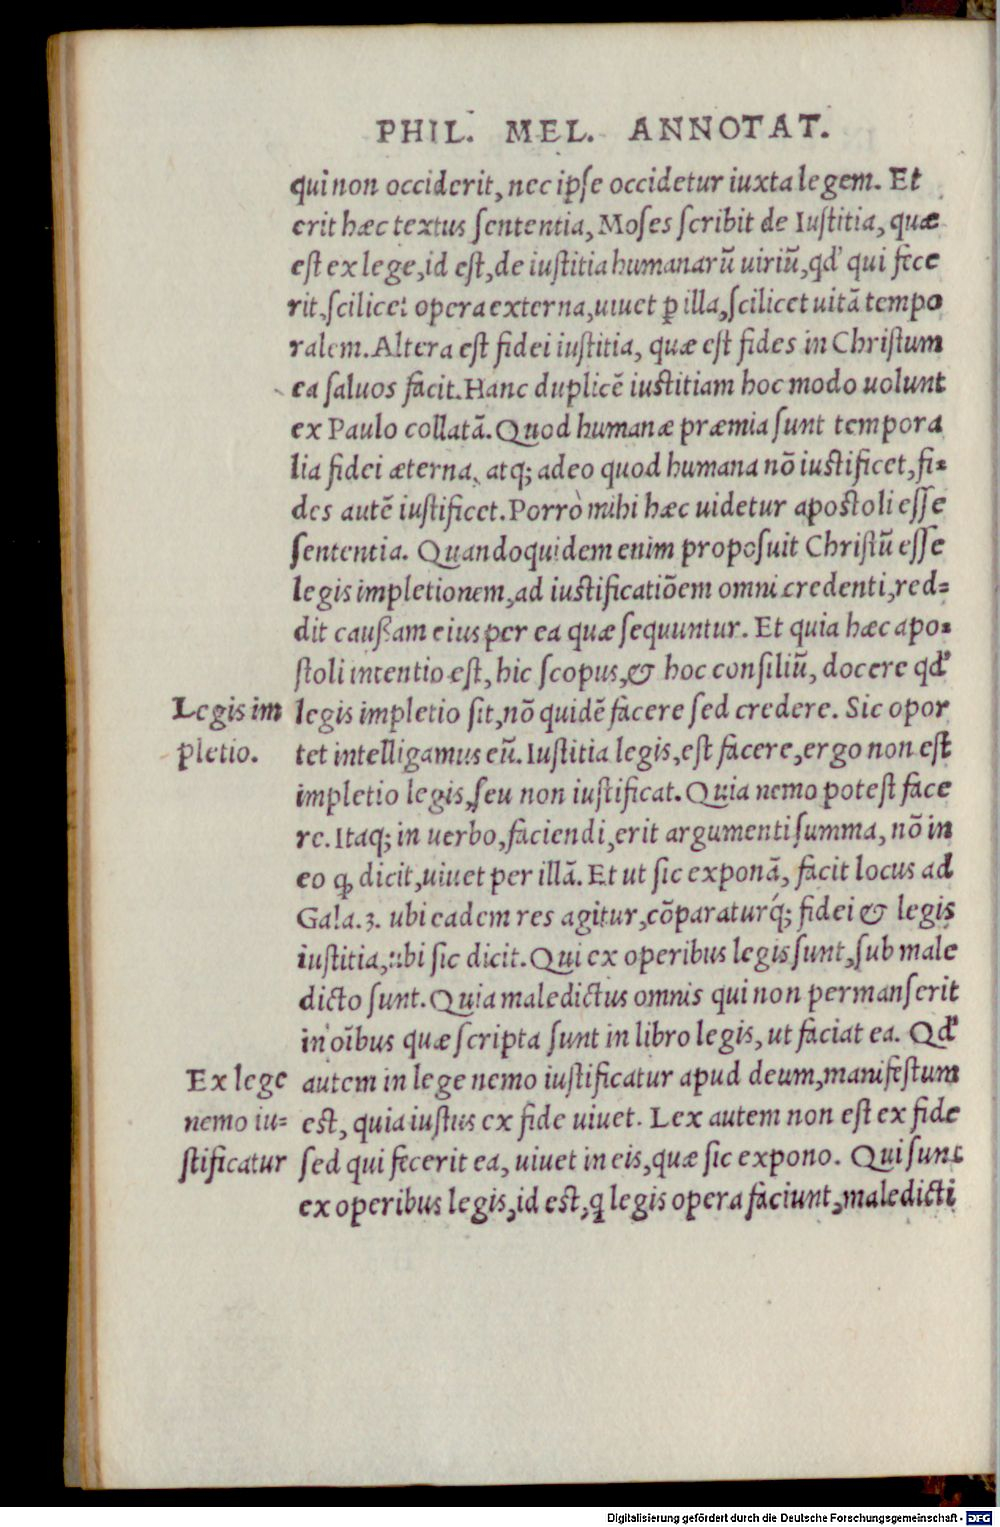 PHIL. MEL. ANNOTAT.
qui non occiderit, nec ipse occidetur iuxta legem. Et
erit hæc textus sententia, Moses scribit de Iustitia, quæ
est ex lege, id est, de iustitia humanarũ uiriũ, qd' qui fece
rit, scilicet opera externa, uiuet ꝑ illa, scilicet uitã tempo
ralem. Altera est fidei iustitia, quæ est fides in Christum
ea saluos facit. Hanc duplicẽ iustitiam hoc modo uolunt
ex Paulo collatã. Quod humanæ præmia sunt tempora
lia fidei æterna, atq; adeo quod humana nõ iustificet, fi-
des autẽ iustificet. Porrò mihi hæc uidetur apostoli esse
sententia. Quandoquidem enim proposuit Christũ esse
legis impletionem, ad iustificatiõem omni credenti, red=
dit caußam eius per ea quæ sequuntur. Et quia hæc apo-
stoli intentio est, hic scopus, & hoc consiliũ, docere qd'
Legis im
pletio.
legis impletio sit, nõ quidẽ facere sed credere. Sic opor
tet intelligamus eũ. Iustitia legis, est facere, ergo non est
impletio legis, seu non iustificat. Quia nemo potest face
re. Itaq; in uerbo, faciendi, erit argumenti summa, nõ in
eo ꝙ dicit, uiuet per illã. Et ut sic exponã, facit locus ad
Gala. 3. ubi eadem res agitur, cõparaturq́; fidei & legis
iustitia, ubi sic dicit. Qui ex operibus legis sunt, sub male
dicto sunt. Quia maledictus omnis qui non permanserit
in oĩbus quæ scripta sunt in libro legis, ut faciat ea. Qd'
Ex lege
nemo iu=
stificatur
autem in lege nemo iustificatur apud deum, manifestum
est, quia iustus ex fide uiuet. Lex autem non est ex fide
sed qui fecerit ea, uiuet in eis, quæ sic expono. Qui sunt
ex operibus legis, id est, q legis opera faciunt, maledicti
Digitalisierung gefördert durch die Deutsche Forschungsgemeinschaft - DFG